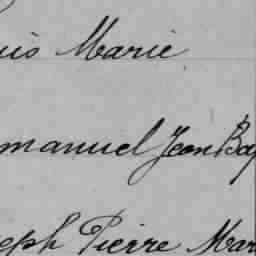 uis Marie
manuel Jean Bap
eph Pierre Mar